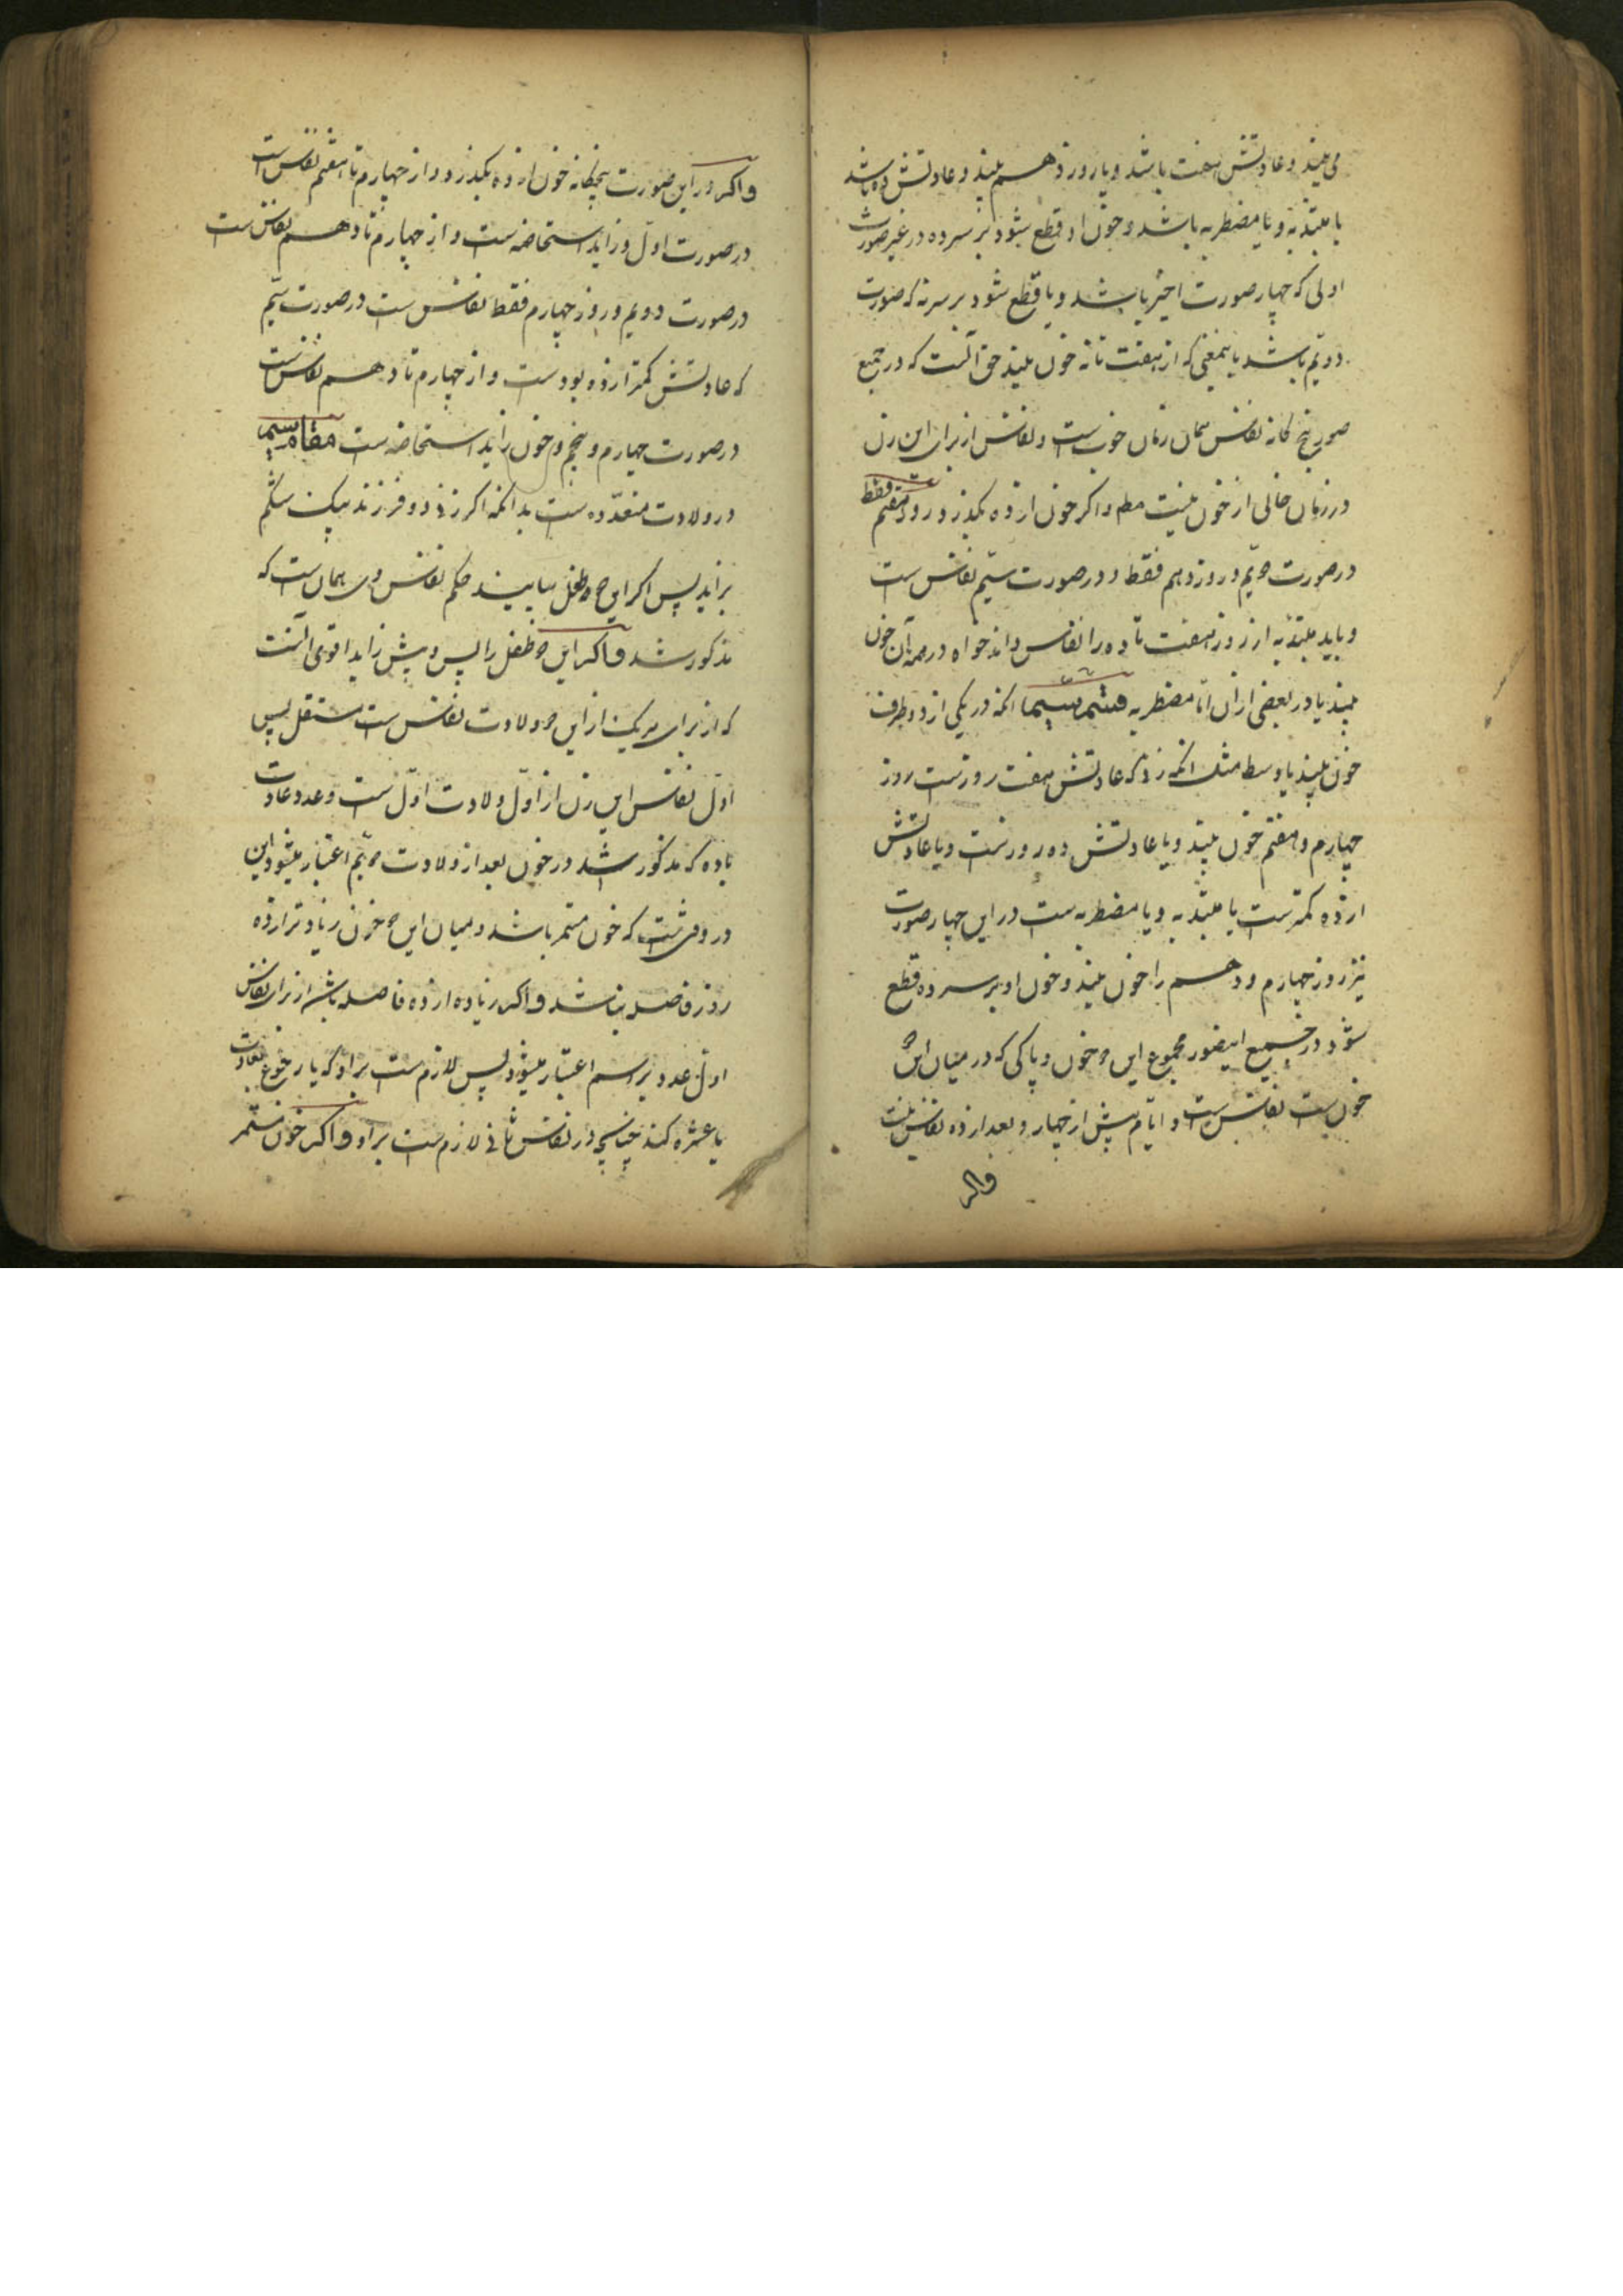 می بیند و عادتش هفت باشد و یا روز دهم بیند و عادتش ده باشد
یا مبتدئه و یا مضطربه باشد و خون او قطع شود بر سر ده در غیر صورت
اولی که چهار صورت اخیر باشد و یا قطع شود بر سر نه که صورت
دویم باشد باینمعنی که از هفت تا نه خون بیند حق آنست که در جمیع
صور پنج کانه نفاس همان زمان خون است و نفاس از برای این زن
در زمان خالی از خون نیست مطم و اکر خون از ده بکذرد روز هفتم فقط
در صورت دویم و روز دهم فقط در صورت سیم نفاس است
و باید مبتدئه از روز هفت تا ده را نفاس داند خواه در همه آن خون
بیند یا در بعضی از ان امّا مضطربه قسم سیم انکه در یکی از دو طرف
خون بیند یا وسط مثل انکه زنی که عادتش هفت روز است روز
چهارم و هفتم خون بیند و یا عادتش ده روز است و یا عادتش
از ده کمتر است یا مبتدئه و یا مضطربه است در این چهار صورت
نیز روز چهارم و دهم را خون بیند و خون او بر سر ده قطع
شود در جمیع اینصور مجموع این دو خون و پاکی که در میان این دو
خون است نفاس است و ایّام پیش از چهار و بعد از ده نفاس نیست
واکر
واکر در این صورت پنجکانه خون از ده بکذرد و از چهارم تا هفتم نفاس است
در صورت اول و زاید استحاضه است و از چهارم تا دهم نفاس است
در صورت دویم و روز چهارم فقط نفاس است در صورت سیم
که عادتش کمتر از ده بوده است و از چهارم تا دهم نفاس است
در صورت چهارم و پنجم و خون زاید استحاضه است مقام سیم
در ولادت متعدّده است بدانکه اکر زنی دو فرزند بیک شکم
بزاید پس اکر این دو طفل بیابند حکم نفاس وی همان است که
مذکور شد واکر این دو طفل را پس و پیش زاید اقوی آنست
که از برای هر یک از این دو ولادت نفاس است مستقل پس
اوّل نفاس این زن از اوّل ولادت اوّل است و عدد عادت
یا ده که مذکور شد در خون بعد از ولادت دویم اعتبار میشود این
در وقتی است که خون مستمر باشد و میان این دو خون زیادتر از ده
روز فاصله نباشد واکر زیاده از ده فاصله باشد از برای نفاس
اول عدد بر اسم اعتبار میشود پس لازم است بر او که یا رجوع بعادت
یا عشره کند چنانچه در نفاس ثانی لازم است بر او واکر خون مستمر